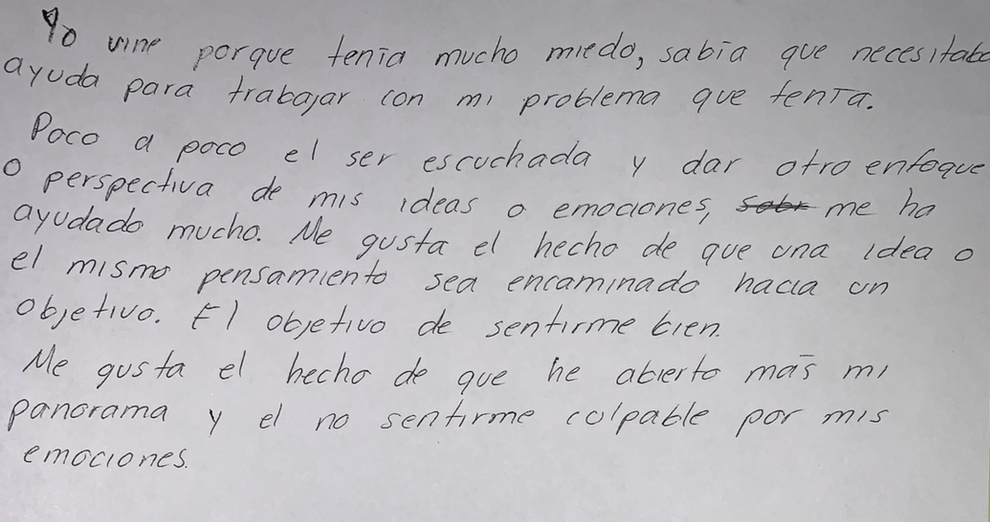 Yo vine porque tenía mucho miedo, sabía que necesitaba
ayuda para trabajar con mi problema que tenía.
Poco a poco el ser escuchada y dar otro enfoque
o perspectiva de mis ideas o emociones, sobr me ha
ayudado mucho. Me gusta el hecho de que una idea o
el mismo pensamiento sea encaminado hacia un
objetivo. El objetivo de sentirme bien.
Me gusta el hecho de que he abierto más mi
panorama y el no sentirme culpable por mis
emociones.